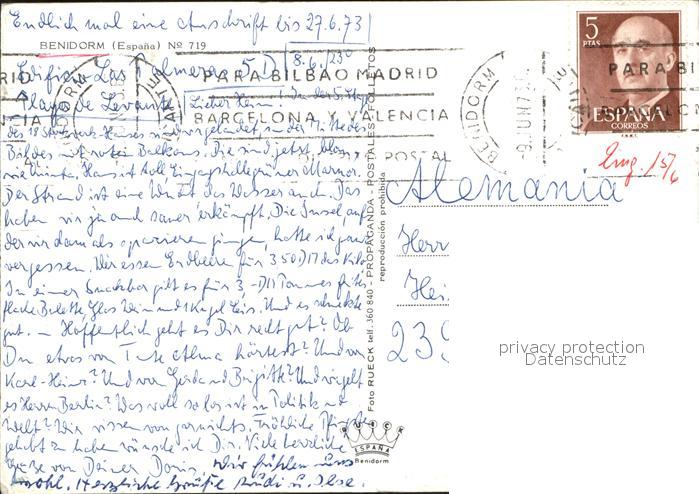 Endlich mal eine Anschrift bis 27.6.73!
BENIDORM (España) Nº 719
8.6. 23°
Edificio Las Palmeras 5 D
Playa de Levante
Lieber Heini! In der 5. Etage
des 18 Hauses sind wir gelandet, in der Mitte des
Bildes mit roten Balkons. Die sind jetzt blau
wie hinten. Haus ist toll. Eingangshalle grüner Marmor.
Der Strand ist eine Wucht, das Wasser auch. Das
haben wir ja auch sauer erkämpft. Die Insel, auf
der wir damals spazieren gingen, hatte ich ganz
vergessen. Wir essen Erdbeeren für 3.50 DM das Kilo.
In einer Snackbar gibt es für 3,- DM Pommes frites
Bulette, Glas Wein und 1 Kugel Eis. Und es schmeckt
gut. – Hoffentlich geht es Dir recht gut? Ob
Du etwas von Tante Alma hörtest? Und von
Karl-Heinz? Und von Gerda und Brigitte? Und wie geht
es Herrn Berlin? Was soll so los ist in Politik und
Welt? Wir wissen von garnichts. Fröhliche Pfingsten
gehabt zu haben wünsche ich Dir. Viele herzliche
Grüße von Deiner Doris. Wir fühlen uns
wohl. Herzliche Grüße Rudi u. Ilse.
Foto RUECK telf. 360 840 - PROPAGANDA - POSTALES - FOLLETOS
reproducción prohibida
RUECK
ESPAÑA
Benidorm
PARA BILBAO MADRID
BARCELONA Y VALENCIA
POSTAL
BENIDORM
-9.JUN 73
ALICANTE
5
PTAS
ESPAÑA
CORREOS
F.N.M.T.
Eing. 15/6
Alemania
Herr
Hei
23
privacy protection
Datenschutz